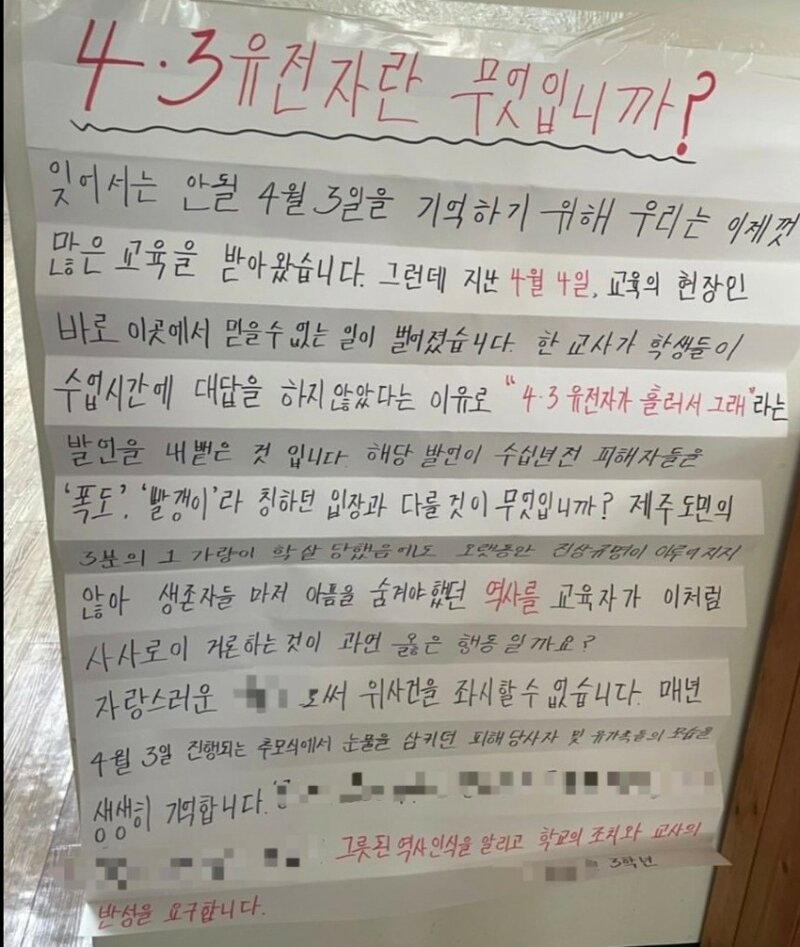 4·3유전자란 무엇입니까?
잊어서는 안될 4월 3일을 기억하기 위해 우리는 이제껏
많은 교육을 받아왔습니다. 그런데 지난 4월 4일, 교육의 현장인
바로 이곳에서 믿을수 없는 일이 벌어졌습니다. 한 교사가 학생들이
수업시간에 대답을 하지않았다는 이유로 "4·3 유전자가 흘러서 그래"라는
발언을 내뱉은 것 입니다. 해당 발언이 수십년전 피해자들을
'폭도', '빨갱이'라 칭하던 입장과 다를것이 무엇입니까? 제주도민의
3분의 1 가량이 학살 당했음에도 오랫동안 진상규명이 이루어지지
않아 생존자들 마저 아픔을 숨겨야했던 역사를 교육자가 이처럼
사사로이 거론하는것이 과연 옳은 행동일까요?
자랑스러운 로써 위사건을 좌시할 수 없습니다. 매년
4월 3일 진행되는 추모식에서 눈물을 삼키던 피해당사자 및 유가족들의 모습을
생생히 기억합니다.
그릇된 역사인식을 알리고 학교의 조치와 교사의
반성을 요구합니다.
3학년